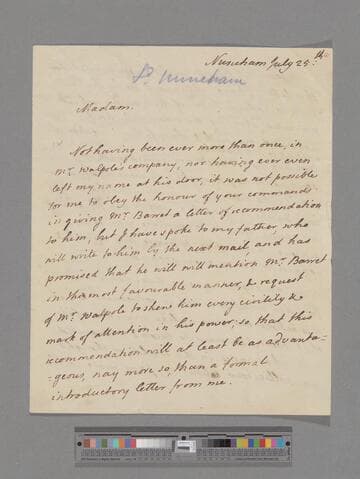 Nuneham July 25.th
Ld. Nuneham
Madam.
Not having been ever more than once, in
Mr. Walpole's company, nor having ever even
left my name at his door, it was not possible
for me to obey the honour of your commands
in giving Mr. Barret a letter of recommendation
to him, but I have spoke to my father, who
will write to him by the next mail, and has
promised that he will will mention Mr. Barret
in the most favourable manner, & request
of Mr. Walpole to shew him every civility &
mark of attention in his power, so that this
recommendation will at least be as advanta-
-geous, nay more so, than a formal
introductory letter from me.